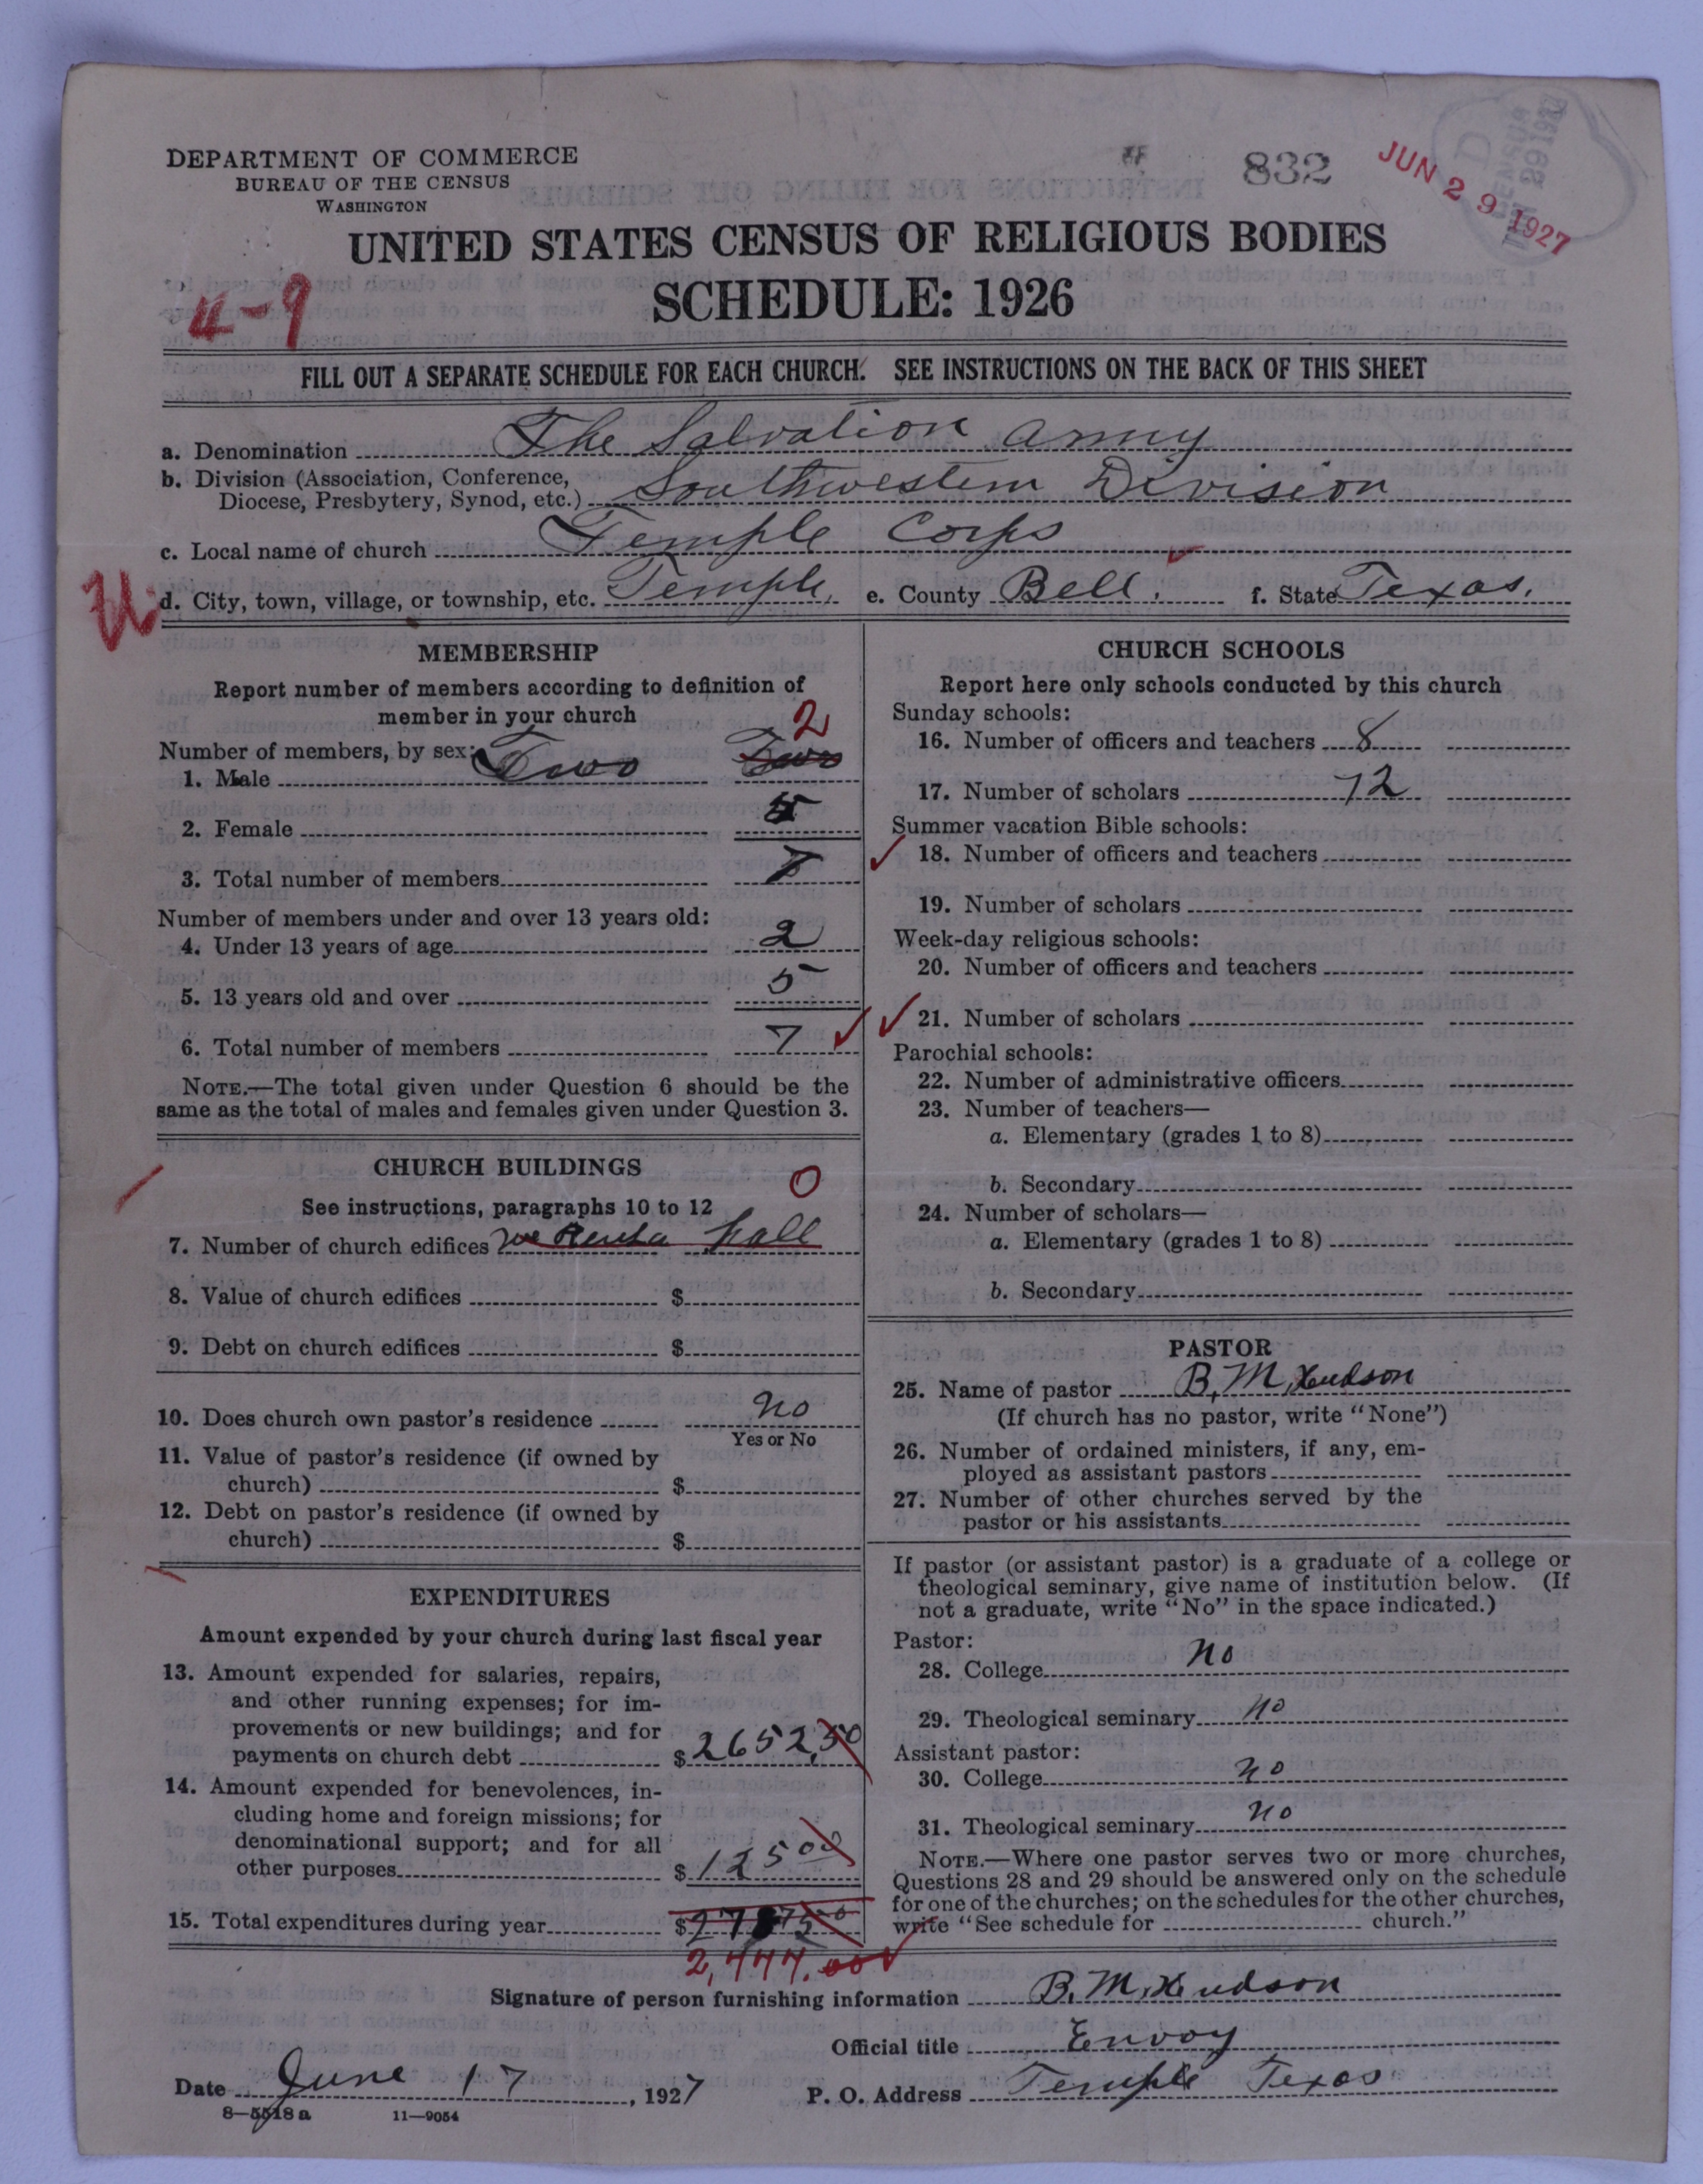 DEPARTMENT OF COMMERCE
BUREAU OF THE CENSUS
WASHINGTON
832
JUN 29 1927
UNITED STATES CENSUS OF RELIGIOUS BODIES
SCHEDULE: 1926
4-9
FILL OUT A SEPARATE SCHEDULE FOR EACH CHURCH. SEE INSTRUCTIONS ON THE BACK OF THIS SHEET
a. Denomination The Salvation Army
b. Division (Association, Conference,
Diocese, Presbytery, Synod, etc.) Southwestern Division
c. Local name of church Temple Corps
U
d. City, town, village, or township, etc. Temple, e. County Bell. f. State Texas.
MEMBERSHIP
Report number of members according to definition of
member in your church
2
Number of members, by sex:
1. Male Two Two
2. Female 5
3. Total number of members 7
Number of members under and over 13 years old:
4. Under 13 years of age 2
5. 13 years old and over 5
6. Total number of members 7
NOTE.—The total given under Question 6 should be the
same as the total of males and females given under Question 3.
CHURCH BUILDINGS
See instructions, paragraphs 10 to 12
0
7. Number of church edifices we Rent a hall
8. Value of church edifices $
9. Debt on church edifices $
10. Does church own pastor's residence no
Yes or No
11. Value of pastor's residence (if owned by
church) $
12. Debt on pastor's residence (if owned by
church) $
EXPENDITURES
Amount expended by your church during last fiscal year
13. Amount expended for salaries, repairs,
and other running expenses; for im-
provements or new buildings; and for
payments on church debt $2652.50
14. Amount expended for benevolences, in-
cluding home and foreign missions; for
denominational support; and for all
other purposes $125 00
15. Total expenditures during year $
2,777.00
CHURCH SCHOOLS
Report here only schools conducted by this church
Sunday schools:
16. Number of officers and teachers 8
17. Number of scholars 72
Summer vacation Bible schools:
18. Number of officers and teachers
19. Number of scholars
Week-day religious schools:
20. Number of officers and teachers
21. Number of scholars
Parochial schools:
22. Number of administrative officers
23. Number of teachers—
a. Elementary (grades 1 to 8)
b. Secondary
24. Number of scholars—
a. Elementary (grades 1 to 8)
b. Secondary
PASTOR
25. Name of pastor B. M. Hudson
(If church has no pastor, write "None")
26. Number of ordained ministers, if any, em-
ployed as assistant pastors
27. Number of other churches served by the
pastor or his assistants
If pastor (or assistant pastor) is a graduate of a college or
theological seminary, give name of institution below. (If
not a graduate, write "No" in the space indicated.)
Pastor:
28. College no
29. Theological seminary no
Assistant pastor:
30. College no
31. Theological seminary no
NOTE.—Where one pastor serves two or more churches,
Questions 28 and 29 should be answered only on the schedule
for one of the churches; on the schedules for the other churches,
write "See schedule for church."
Signature of person furnishing information B. M. Hudson
Official title Envoy
Date June 17, 1927 P. O. Address Temple Texas
8—5518 a 11—9054